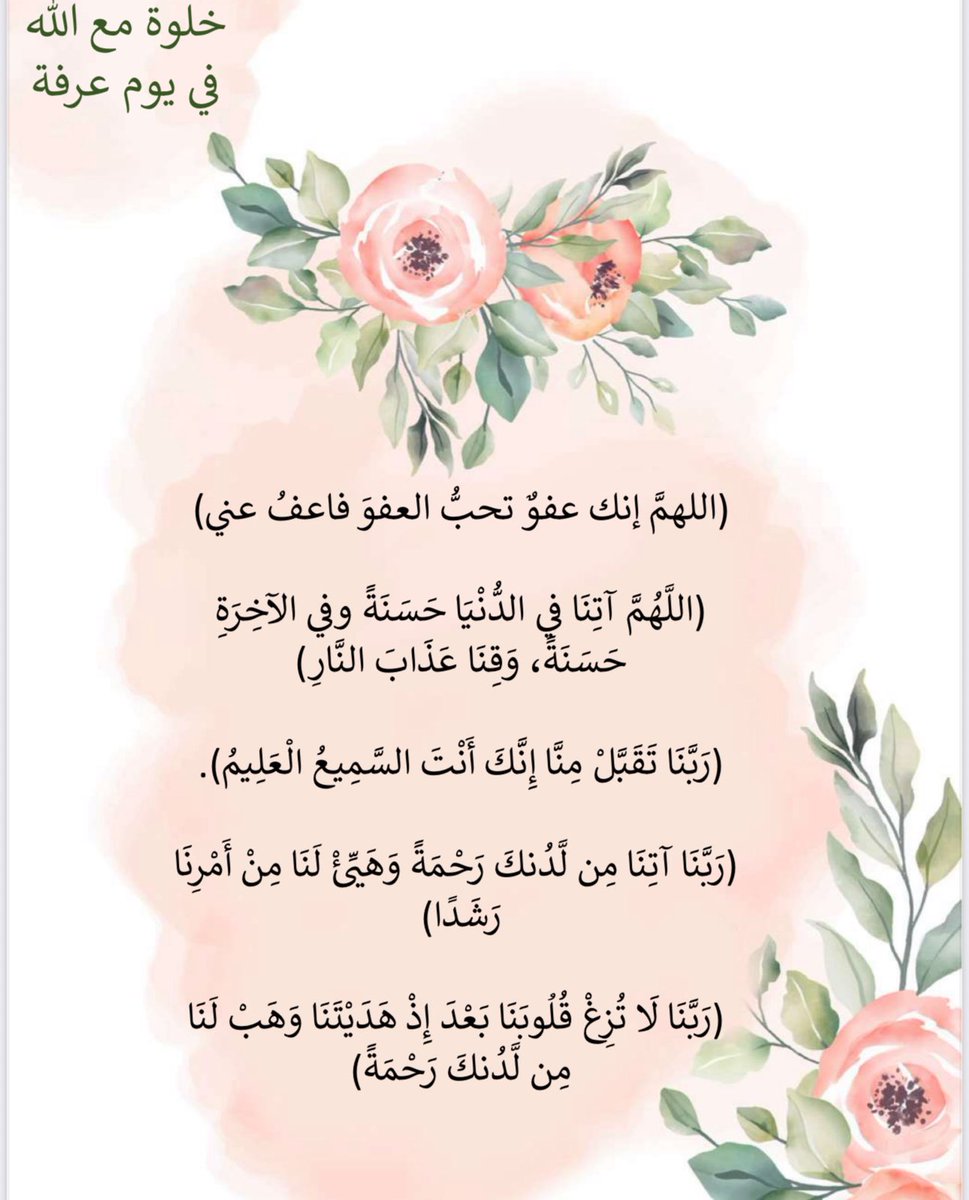 خلوة مع الله
في يوم عرفة
(اللهمَّ إنك عفوٌ تحبُّ العفوَ فاعفُ عني)
(اللَّهُمَّ آتِنَا في الدُّنْيَا حَسَنَةً وفي الآخِرَةِ
حَسَنَةً، وَقِنَا عَذَابَ النَّارِ)
(رَبَّنَا تَقَبَّلْ مِنَّا إِنَّكَ أَنْتَ السَّمِيعُ الْعَلِيمُ).
(رَبَّنَا آتِنَا مِن لَّدُنكَ رَحْمَةً وَهَيِّئْ لَنَا مِنْ أَمْرِنَا
رَشَدًا)
(رَبَّنَا لَا تُزِغْ قُلُوبَنَا بَعْدَ إِذْ هَدَيْتَنَا وَهَبْ لَنَا
مِن لَّدُنكَ رَحْمَةً)